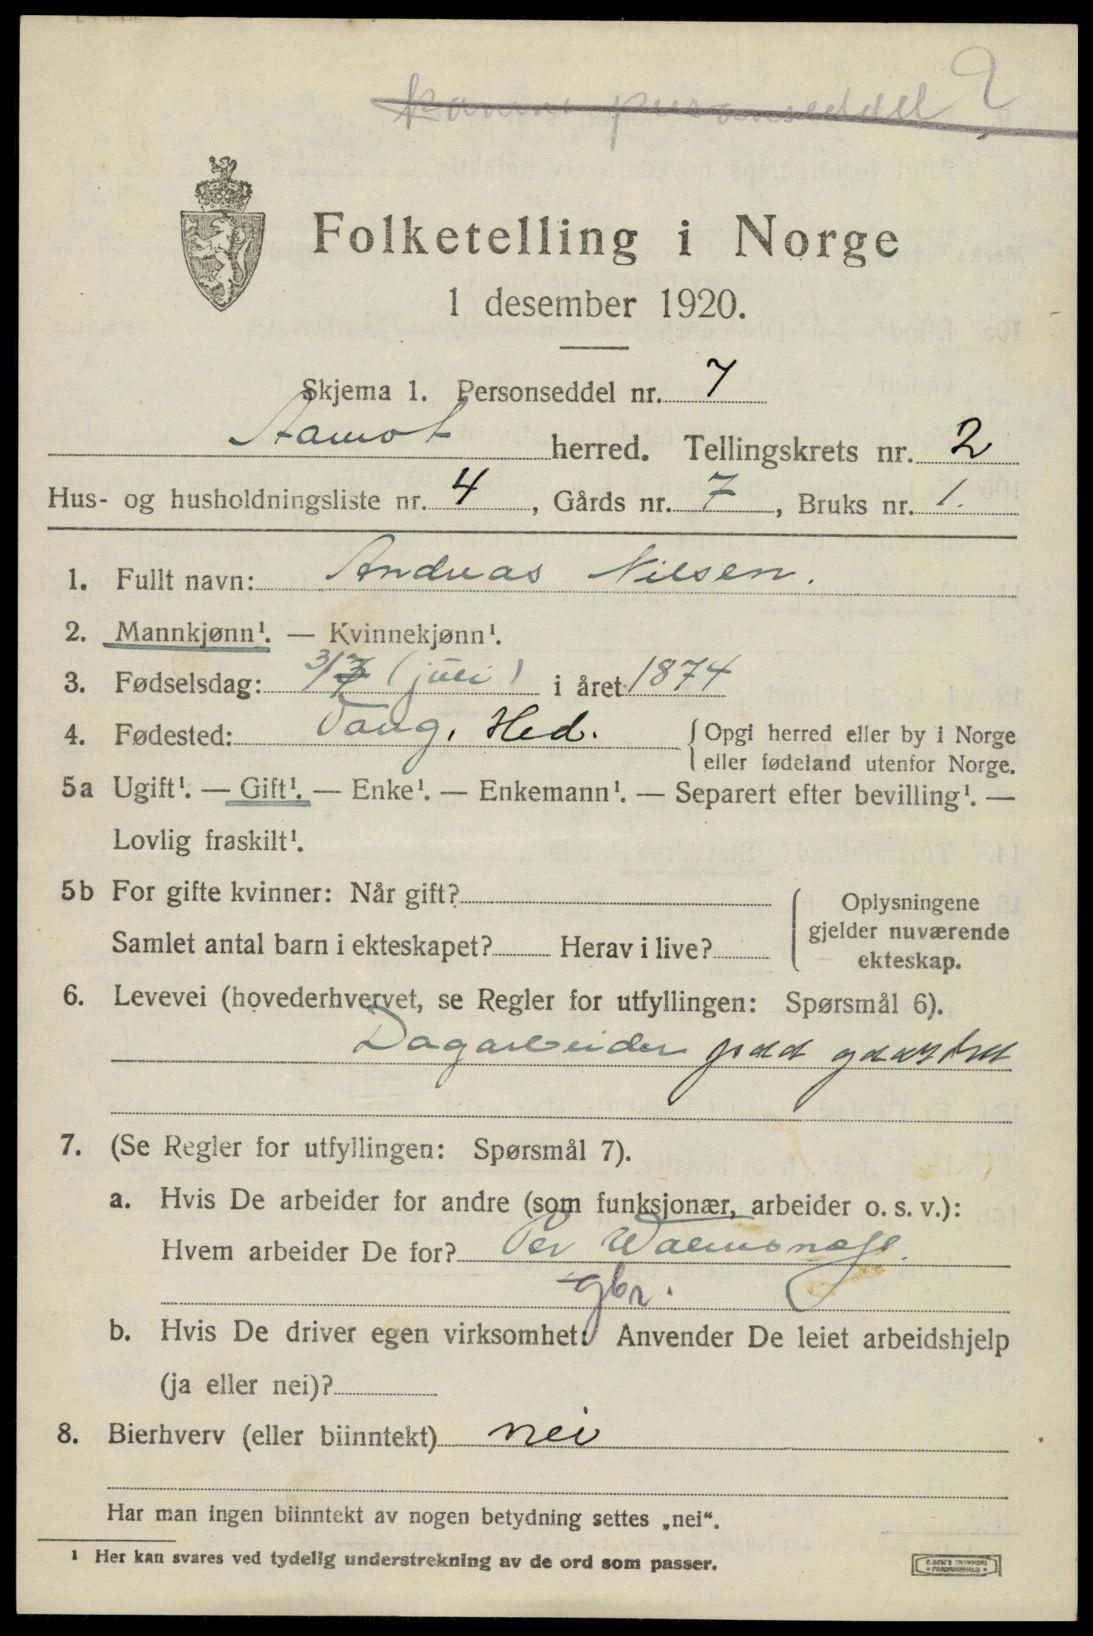 personseddel ?
Folketelling i Norge
1 desember 1920.
Skjema 1. Personseddel nr. 7
Aamot herred. Tellingskrets nr. 2
Hus- og husholdningsliste nr. 4, Gårds nr. 7, Bruks nr. 1.
1. Fullt navn: Andreas Nilsen.
2. Mannkjønn¹. — Kvinnekjønn¹.
3. Fødselsdag: 3/7 (juli) i året 1874
4. Fødested: Vang, Hed. { Opgi herred eller by i Norge
eller fødeland utenfor Norge.
5a Ugift¹. — Gift¹. — Enke¹. — Enkemann¹. — Separert efter bevilling¹. —
Lovlig fraskilt¹.
5b For gifte kvinner: Når gift?
Samlet antal barn i ekteskapet? Herav i live?
{ Oplysningene
gjelder nuværende
ekteskap.
6. Levevei (hovederhvervet, se Regler for utfyllingen: Spørsmål 6).
Dagarbeider paa gaardsar
7. (Se Regler for utfyllingen: Spørsmål 7).
a. Hvis De arbeider for andre (som funksjonær, arbeider o. s. v.):
Hvem arbeider De for? Per
gbr.
b. Hvis De driver egen virksomhet: Anvender De leiet arbeidshjelp
(ja eller nei)?
8. Bierhverv (eller biinntekt) nei
Har man ingen biinntekt av nogen betydning settes „nei“.
¹ Her kan svares ved tydelig understrekning av de ord som passer.